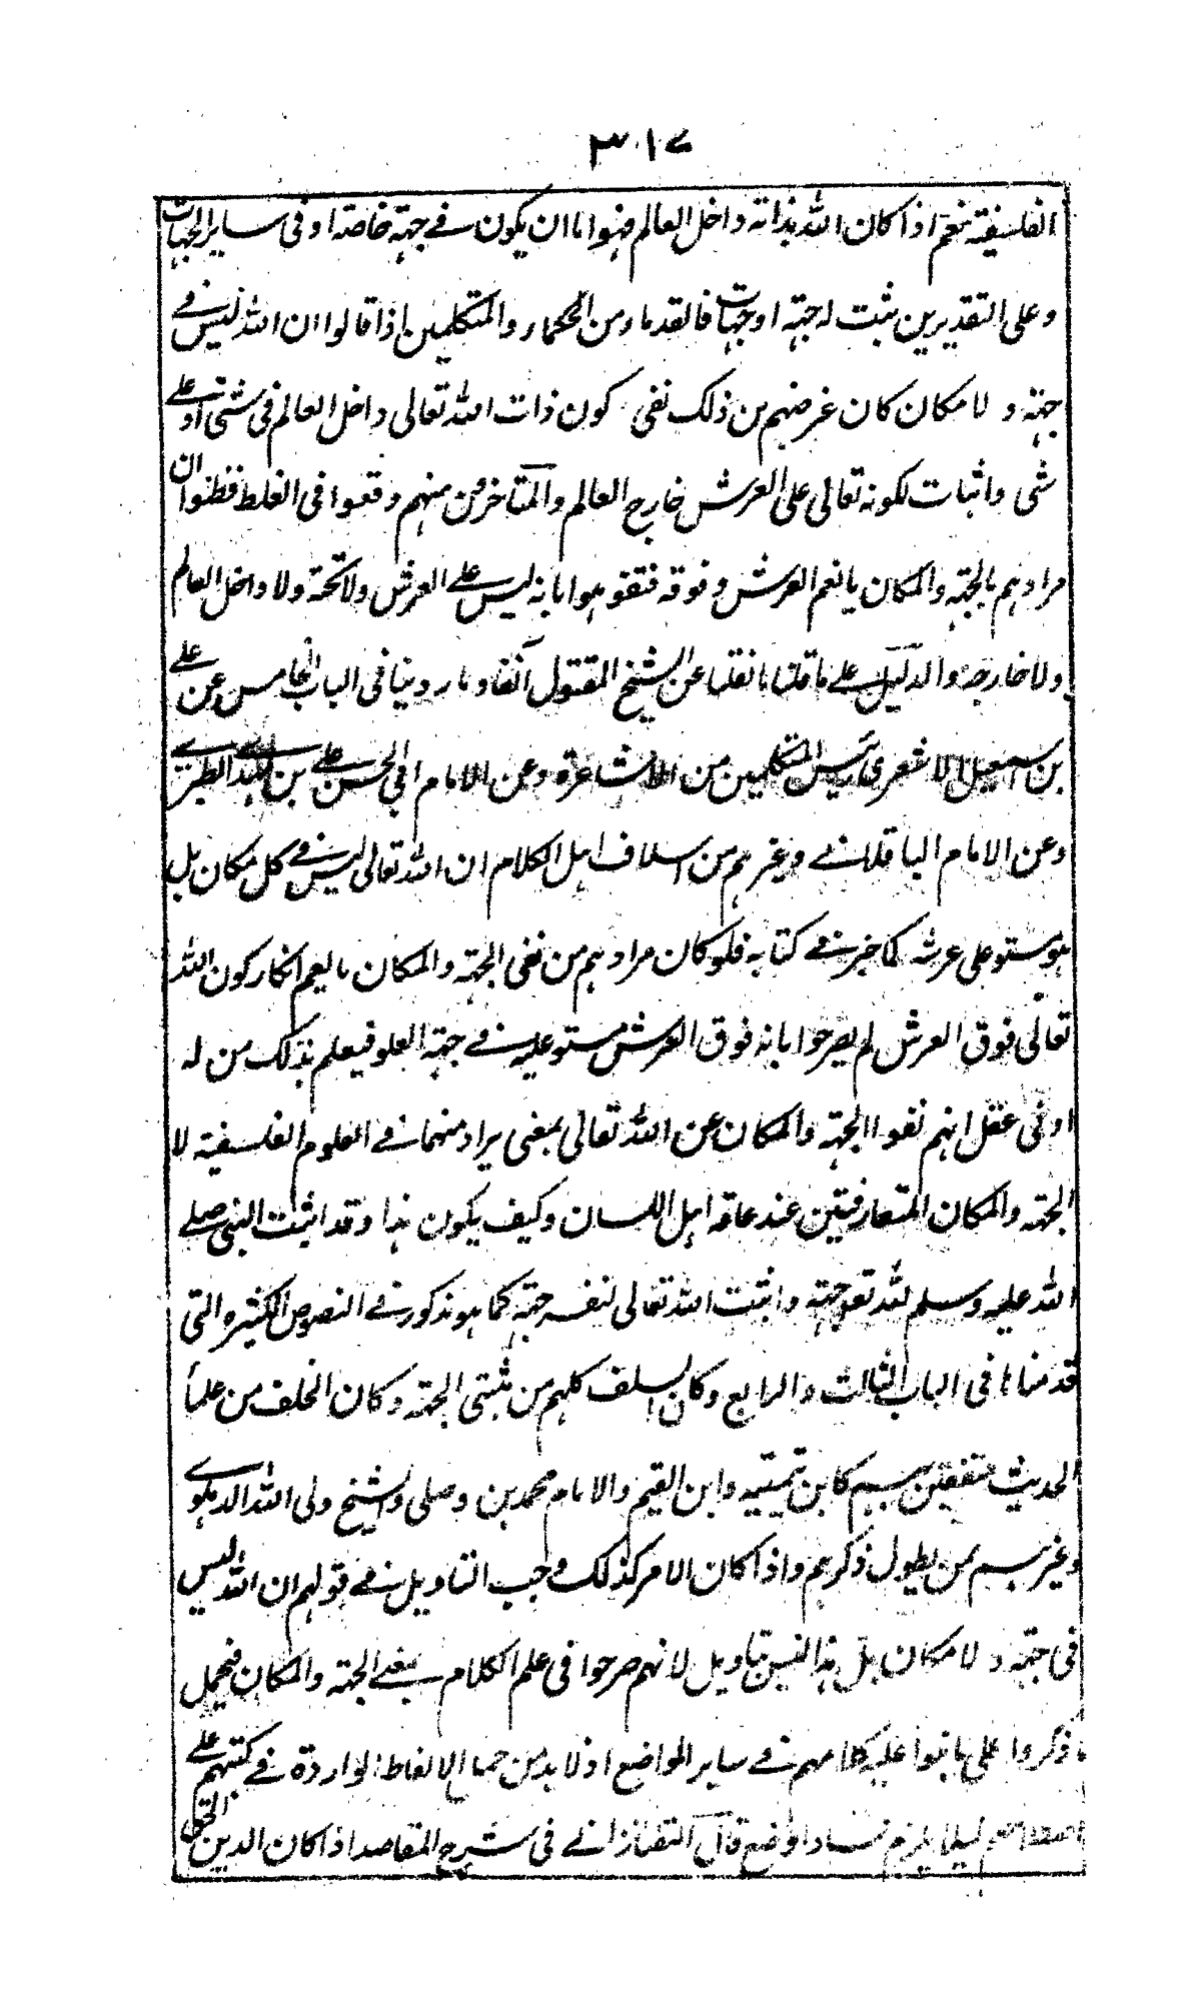 ٣١٧
الفلسفية نعم اذا كان الله بذاته داخل العالم فهو اما ان يكون في جهة خاصة او في ساير الجهات
وعلى التقديرين يثبت له جهة او جهات فالقدماء من الحكماء والمتكلمين اذا قالوا ان الله ليس في
جهة ولا مكان كان غرضهم من ذلك نفي كون ذات الله تعالى داخل العالم في شئ او على
شئ واثبات لكونه تعالى على العرش خارج العالم والمتاخرون منهم وقعوا في الغلط فظنوا ان
مرادهم بالجهة والمكان ما يعم العرش وفوقه فتفوهوا بانه ليس على العرش ولا تحته ولا داخل العالم
ولا خارجه والدليل على ما قلنا ما نقلنا عن الشيخ المقتول آنفا وما روينا في الباب الخامس عن على
بن اسمعيل الاشعري رئيس المتكلمين من الاشاعرة وعن الامام ابي الحسن على بن مهدي الطبري
وعن الامام الباقلاني وغيرهم من اسلاف اهل الكلام ان الله تعالى ليس في كل مكان بل
هو مستو على عرشه كما اخبر في كتابه فلو كان مرادهم من نفي الجهة والمكان ما يعم انكار كون الله
تعالى فوق العرش لم يصرحوا بانه فوق العرش مستو عليه في جهة العلو فيعلم بذلك من له
ادنى عقل انهم نفوا الجهة والمكان عن الله تعالى بمعنى يراد منهما في العلوم الفلسفية لا
الجهة والمكان المتعارفتين عند عامة اهل اللسان وكيف يكون هذا وقد اثبت النبي صلى
الله عليه وسلم لله تعالى جهة واثبت الله تعالى لنفسه جهة كما هو مذكور في النصوص الكثيرة التي
قدمناها في الباب الثالث والرابع وكان السلف كلهم من مثبتي الجهة وكان الخلف من علماء
الحديث متفقين بهم كابن تيمية وابن القيم والامام محمد بن وصلى والشيخ ولى الله الدهلوي
وغيرهم ممن يطول ذكرهم واذا كان الامر كذلك وجب التاويل في قولهم ان الله ليس
في جهة ولا مكان بل هذا ليس بتاويل لانهم صرحوا في علم الكلام بمعنى الجهة والمكان فيحمل
ما ذكروا على ما بنوا عليه كلامهم في ساير المواضع اذ لا بد من حمل الالفاظ الواردة في كتبهم على
اصطلاحهم ليلا يلزم فساد الوضع قال التفتازاني في شرح المقاصد اذا كان الدين الحق